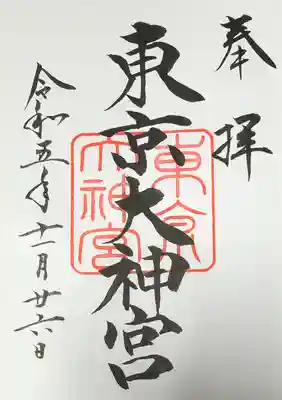 奉拝
東京大神宮
東京大神宮
令和五年十一月廿六日